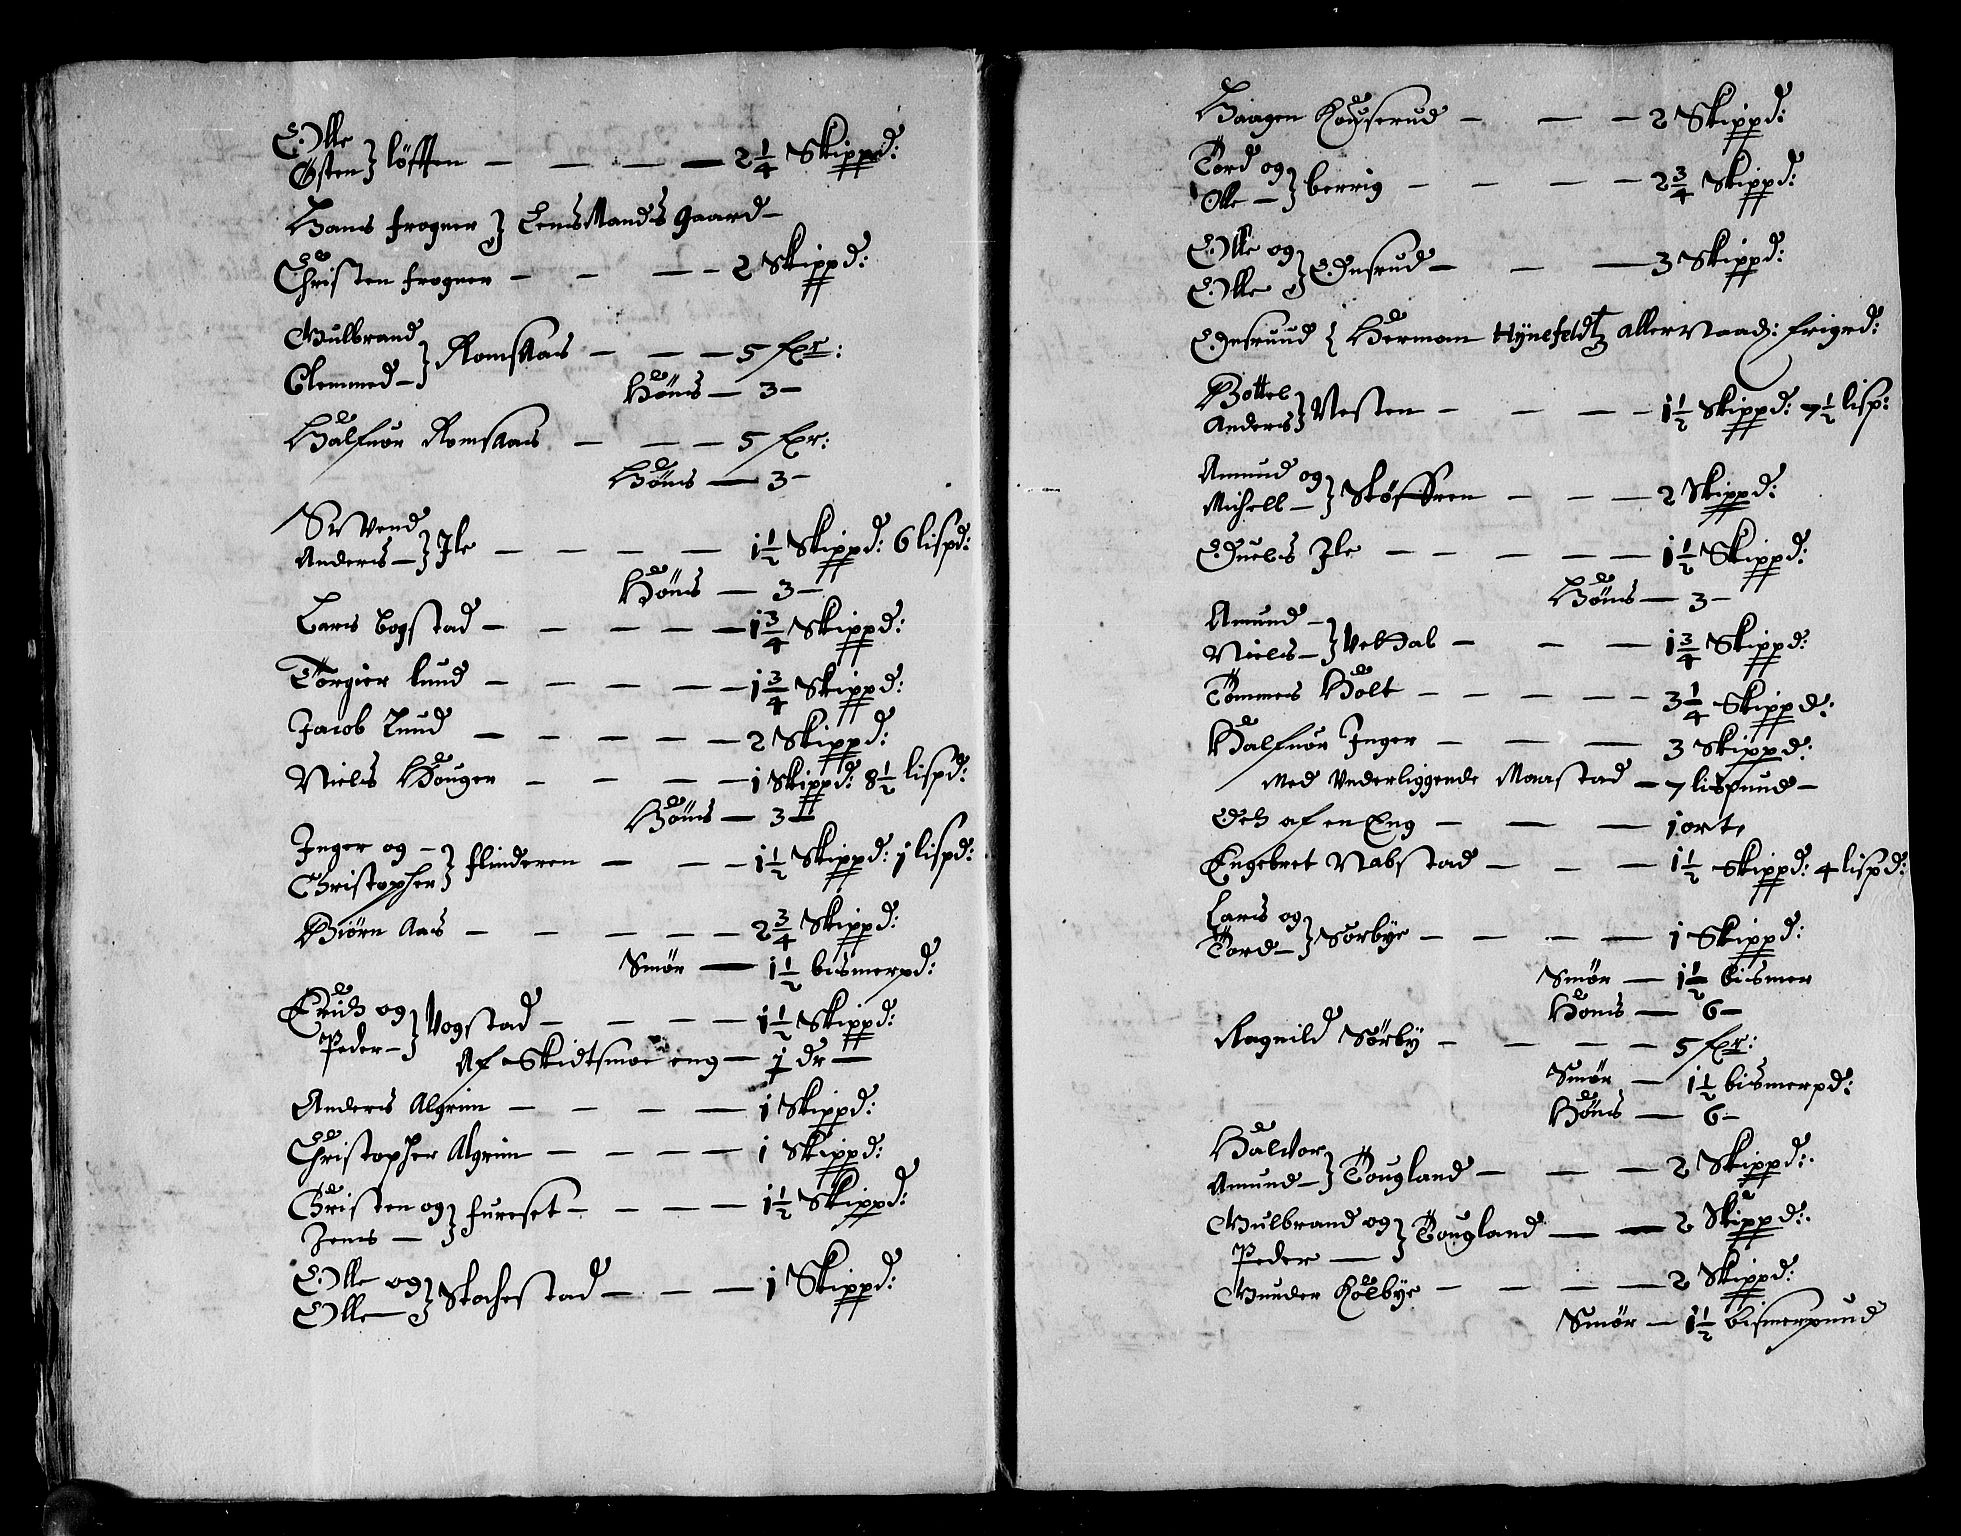 Olle
Østen } løffen — — — — 2 1/4 Skippd:
Hans frogner } Lens Mands Gaard —
Christen frogner — — — — 2 Skippd:
Gulbrand
Clemmed — } Romsaas — — — 5 fr:
Höns — 3 —
Halfuor Romsaas — — — 5 fr:
Höns — 3 —
Siuend
Anders — } Jle — — — — 1 1/2 Skippd: 6 lispd:
Höns — 3 —
Lars bogstad — — — — — 1 3/4 Skippd:
Torgier lund — — — — — 1 3/4 Skippd:
Jacob Lund — — — — — 2 Skippd:
Niels Houger — — — — 1 Skippd: 8 1/2 lispd:
Höns — 3 —
Inger og —
Christopher } flinderen — — — 1 1/2 Skippd: 1 lispd:
Biørn Aas — — — — — 2 3/4 Skippd:
Smør — 1 1/2 bismerpd:
Erich og
Peder — } Vogstad — — — — 1 1/2 Skippd:
Af Skidtsmoe eng — 1 dr —
Anders Algrim — — — — 1 Skippd:
Christopher Algrim — — — — 1 Skippd:
Christen og
Jens — } fureset — — — — 1 1/2 Skippd:
Olle og
Olle — } Stochestad — — — 1 Skippd:
Haagen Kouserud — — — 2 Skippd:
Tord og
Olle — } berrig — — — — 2 3/4 Skippd:
Olle og
Olle } Ensrud — — — 3 Skippd:
Ensruud { Herman Hÿnefeldtz aller Naad: frigrd:
Bottel
Anders } Nesten — — — — 1 1/2 Skippd: 7 1/2 lisp:
Amund og
Michell — } Støffren — — — 2 Skippd:
Engels Jle — — — — — 1 1/2 Skippd:
Höns — 3 —
Amund —
Niels — } Vehal — — — 1 3/4 Skippd:
Tommes Holt — — — — — 3 1/4 Skippd:
Halfuor Inger — — — — 3 Skippd:
Med Vnderliggende Maastad — 7 lispund —
Och af en Eng — — — 1 ort,
Engebret Nabstad — — — 1 1/2 Skippd: 4 lispd:
Lars og
Tord — } Sørbÿe — — — — 1 Skippd:
Smør — 1 1/2 bismer
Höns — 6 —
Ragnild Sørby — — — — 5 fr:
Smør — 1 1/2 bismerpd:
Höns — 6 —
Haluor
Amund — } Tougland — — — 2 Skippd:
Gulbrand og
Peder — } Tougland — — 2 Skippd:
Gunder Kolbÿe — — — — 2 Skippd:
Smør — 1 1/2 bismerpund